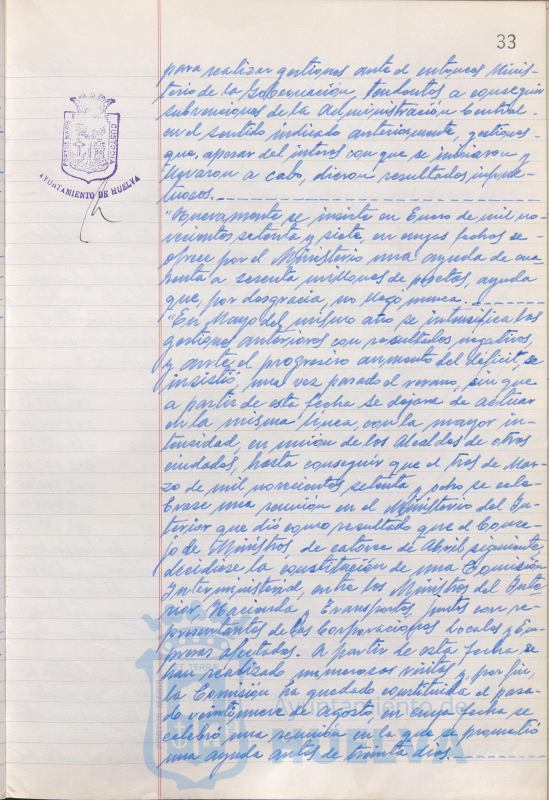 33
para realizar gestiones ante el entonces Minis-
terio de la Gobernación, tendentes a conseguir
subvenciones de la Administración Central-
en el sentido indicado anteriormente, gestiones-
que, apesar del interes con que se iniciaron y
llevaron a cabo, dieron resultados infruc-
tuosos.
"Nuevamente se insiste en Enero de mil no-
vecientos setenta y siete, en cuyas fechas se-
ofrece por el Ministerio una ayuda de cua-
renta a sesenta millones de pesetas, ayuda
que, por desgracia, no llegó nunca.
"En Mayo del mismo año se intensifica las
gestiones anteriores con resultados negativos,
y ante el progresivo aumento del déficit, se
insistió, una vez pasado el verano, sin que
a partir de esta fecha se dejara de actuar
en la misma línea, con la mayor in-
tensidad, en unión de los Alcaldes de otras
ciudades, hasta conseguir que el tres de Mar-
zo de mil novecientos setenta y ocho se cele-
brase una reunión en el Ministerio del In-
terior que dió como resultado que el Conse-
jo de Ministros, de catorce de Abril, siguiente,
decidiese la constitución de una Comisión
Interministerial, entre los Ministros del Inte-
rior, Hacienda y Transportes, juntos con re-
presentantes de las Corporaciones Locales y Em-
presas afectadas. A partir de esta fecha, se
han realizado numerosas visitas y, por fin,
la Comisión ha quedado constituida el pasa-
do veintinueve de Agosto, en cuya fecha se
celebró una reunión en la que se prometió
una ayuda antes de treinta días.
PORTUS MARIS
CUSTODIA
AYUNTAMIENTO DE HUELVA
Ayuntamiento de
HUELVA